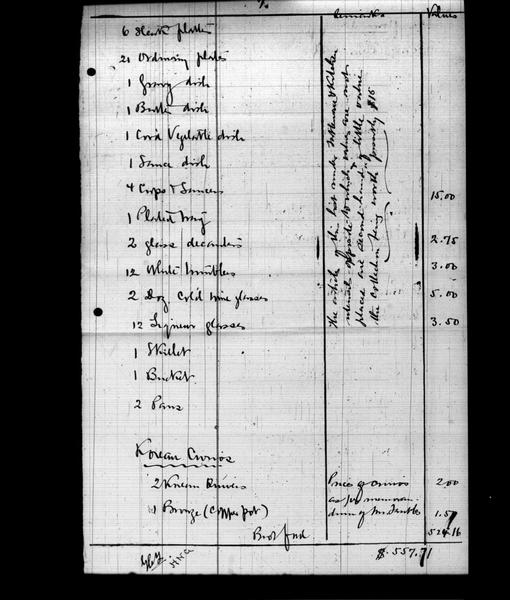 Remarks Values
6 Meat plates
21 Ordinary plates
1 Gravy dish
1 Butter dish
1 Cov'd Vegetable dish
1 Sauce dish
4 Cups & Saucers 15.00
1 Plated tray
2 glass decanters 2.75
12 White tumblers 3.00
2 Doz Col'd wine glasses 5.00
12 Liqueur glasses 3.50
1 Skillet
1 Bucket
2 Pans
The whole of this list under Tableware & Kitchen
utensils opposite to which values are not
placed are second-hand & of little value
the collection being worth possibly $15
Korean Curios
2 Korean Knives Price of curios 2.00
1 Bronze (Copper pot) as per memoran- 1.57
dum of Mr.
Brot ford 524.16
$557.71